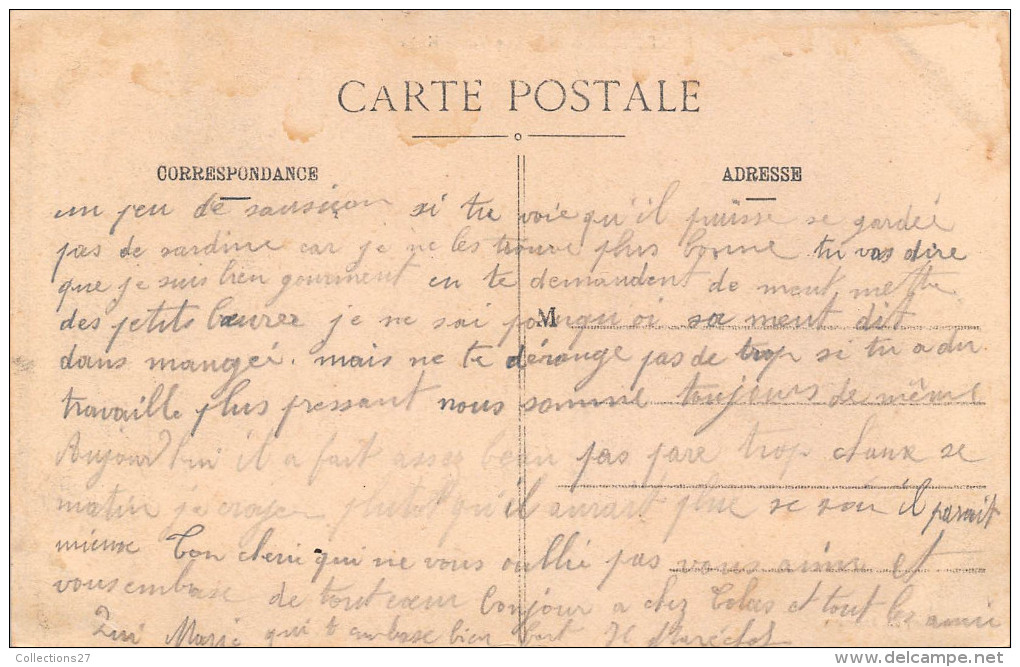 CARTE POSTALE
CORRESPONDANCE
ADRESSE
un peu de sausiçon si tu voie qu'il puisse se gardée
pas de sardine car je ne les trouve plus bonne tu vas dire
que je suis bien gourment en te demandent de meut mettre
M
des petits beurer je ne sai pourquoi sa meut dit
dans mangeé. mais ne te dérange pas de trop si tu a du
travaille plus pressant nous somme toujours de même
Aujourd'hui il a fait assez beau pas pare trop chaux se
matin je croyer plutot qu'il aurait plue se soir il parait
mieux Ton cheri qui ne vous oublie pas vous aime et
vous embrase de tout cœur bonjour a chez Colas et tout les amie
Marie qui t'embrase bien fort
Collections27
http://www.delcampe.net